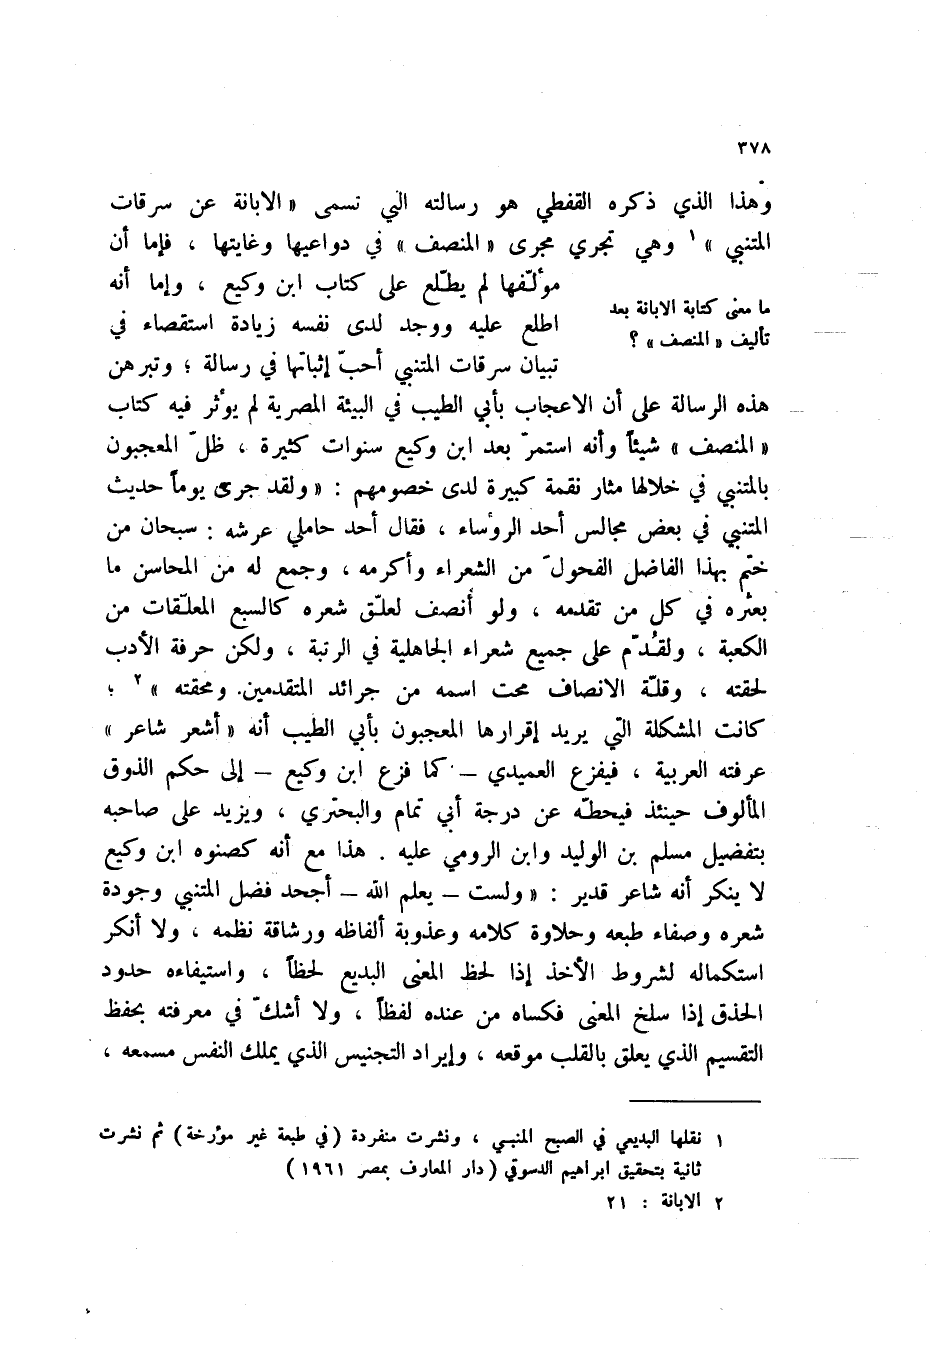 ٣٧٨
وهذا الذي ذكره القفطي هو رسالته التي تسمى « الابانة عن سرقات
المتنبي » ١ وهي تجري مجرى « المنصف » في دواعيها وغايتها ، فإما أن
مؤلّفها لم يطّلع على كتاب ابن وكيع ، وإما أنه
ما معنى كتابة الابانة بعد
اطلع عليه ووجد لدى نفسه زيادة استقصاء في
تأليف « المنصف » ؟
تبيان سرقات المتنبي أحبّ إثباتها في رسالة ؛ وتبرهن
هذه الرسالة على أن الاعجاب بأبي الطيب في البيئة المصرية لم يؤثر فيه كتاب
« المنصف » شيئاً وأنه استمرّ بعد ابن وكيع سنوات كثيرة ، ظلّ المعجبون
بالمتنبي في خلالها مثار نقمة كبيرة لدى خصومهم : « ولقد جرى يوماً حديث
المتنبي في بعض مجالس أحد الرؤساء ، فقال أحد حاملي عرشه : سبحان من
ختم بهذا الفاضل الفحولَ من الشعراء وأكرمه ، وجمع له من المحاسن ما
بعثره في كل من تقدمه ، ولو أُنصف لعلّق شعره كالسبع المعلّقات من
الكعبة ، ولقُدّم على جميع شعراء الجاهلية في الرتبة ، ولكن حرفة الأدب
لحقته ، وقلة الانصاف محت اسمه من جرائد المتقدمين ومحقته » ٢ ؛
كانت المشكلة التي يريد إقرارها المعجبون بأبي الطيب أنه « أشعر شاعر »
عرفته العربية ، فيفزع العميدي – كما فزع ابن وكيع – إلى حكم الذوق
المألوف حينئذ فيحطّه عن درجة أبي تمام والبحتري ، ويزيد على صاحبه
بتفضيل مسلم بن الوليد وابن الرومي عليه . هذا مع أنه كصنوه ابن وكيع
لا ينكر أنه شاعر قدير : « ولست – يعلم الله – أجحد فضل المتنبي وجودة
شعره وصفاء طبعه وحلاوة كلامه وعذوبة ألفاظه ورشاقة نظمه ، ولا أنكر
استكماله لشروط الأخذ إذا لحظ المعنى البديع لحظاً ، واستيفاءه حدود
الحذق إذا سلخ المعنى فكساه من عنده لفظاً ، ولا أشكّ في معرفته بحفظ
التقسيم الذي يعلق بالقلب موقعه ، وإيراد التجنيس الذي يملك النفس مسمعه ،
١ نقلها البديعي في الصبح المنبي ، ونشرت منفردة (في طبعة غير مؤرخة) ثم نشرت
ثانية بتحقيق ابراهيم الدسوقي (دار المعارف بمصر ١٩٦١)
٢ الابانة : ٢١